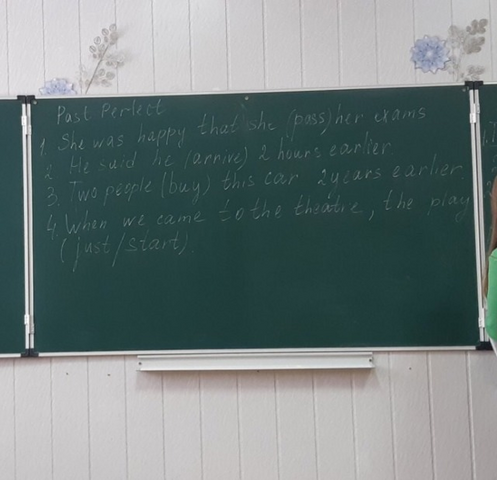 Past Perfect
1. She was happy that she (pass) her exams
2. He said he (arrive) 2 hours earlier
3. Two people (buy) this car 2 years earlier.
4. When we came to the theatre, the play
(just/start).